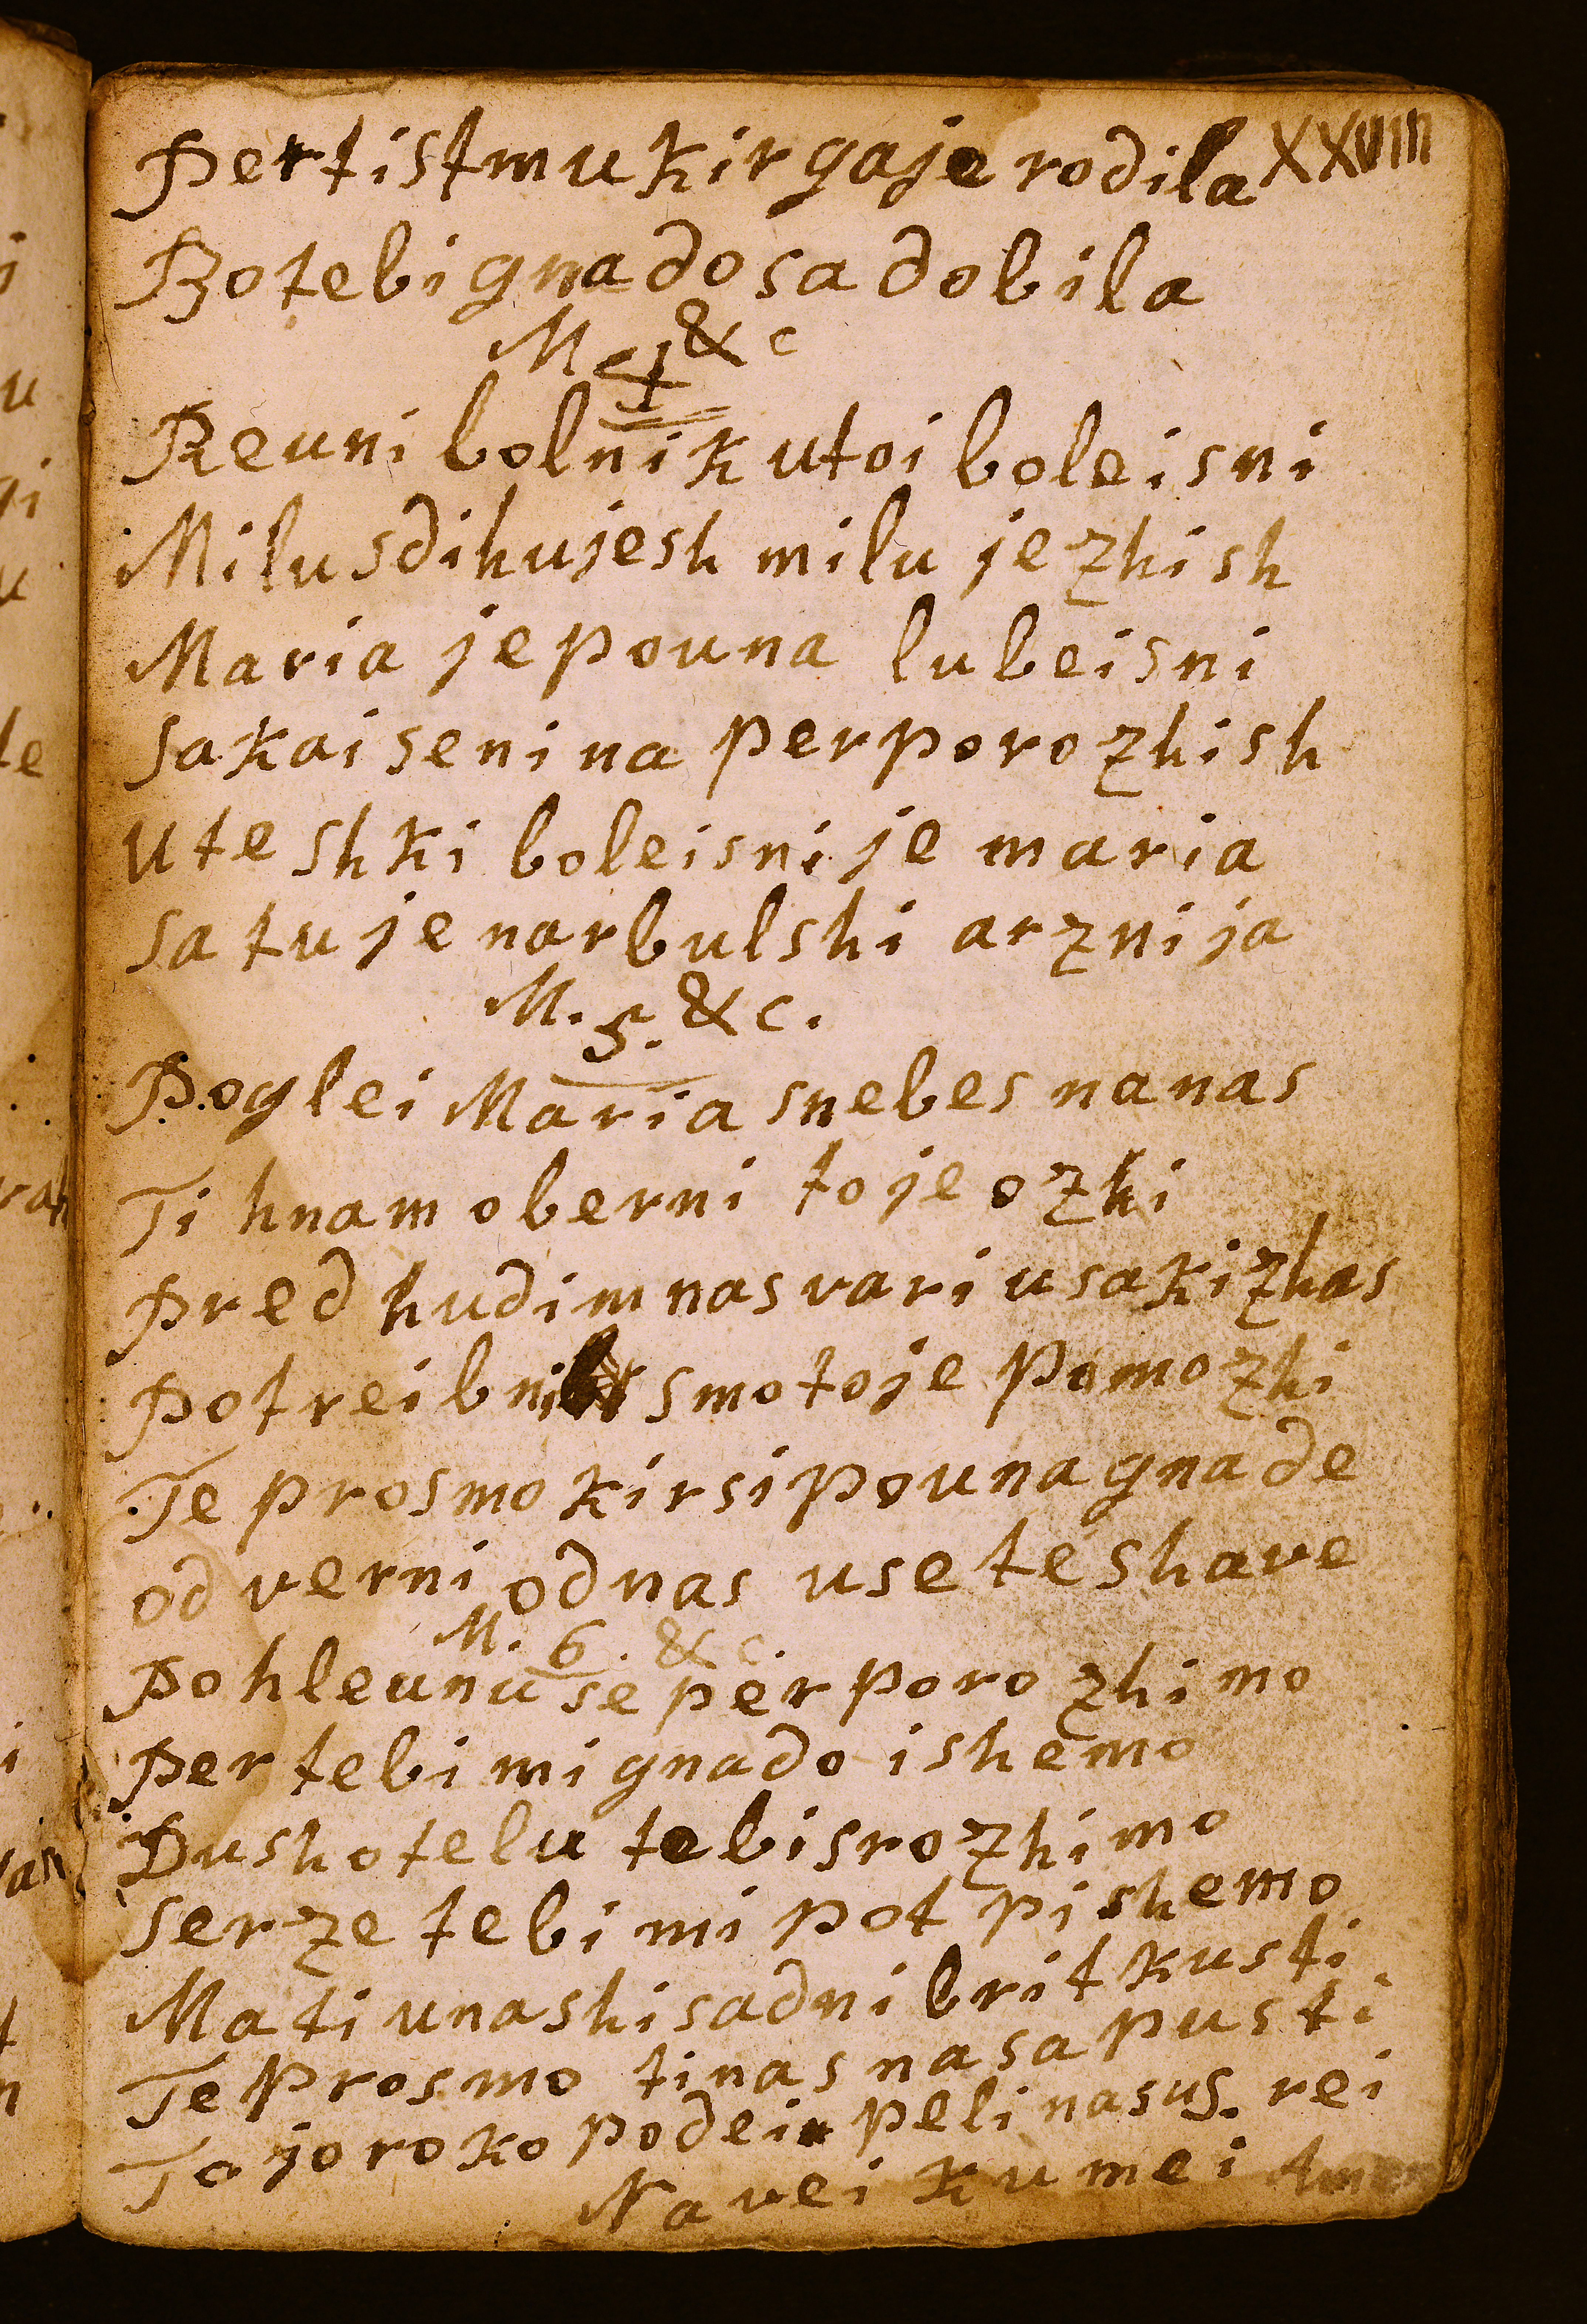 Per tist mu kir ga je rodila XXVIIII
Bo tebi gnado sadobila
M. 4 & c
Reuni bolnik u toi boleisni
Milu sdihujesh milu jezhish
Maria je pouna lubeisni
sakai se ni na perporozhish
u teshki boleisni je maria
sa tu je narbulshi arznija
M. 5. & c.
Poglei Maria snebes na nas
Ti hnam oberni toje ozhi
Pred hudim nas vari usaki zhas
Potreibni smo toje pomozhi
Te prosmo kir si pouna gnade
od verni od nas use teshave
M. 6. & c
Pohleunu se perporozhimo
Per tebi mi gnado ishemo
Dusho telu tebi srozhimo
serze tebi mi pot pishemo
Mati u nashi sadni britkusti
Te prosmo ti nas na sapusti
Tojo roko podei peli nas us. rei
Na veikumei Amen